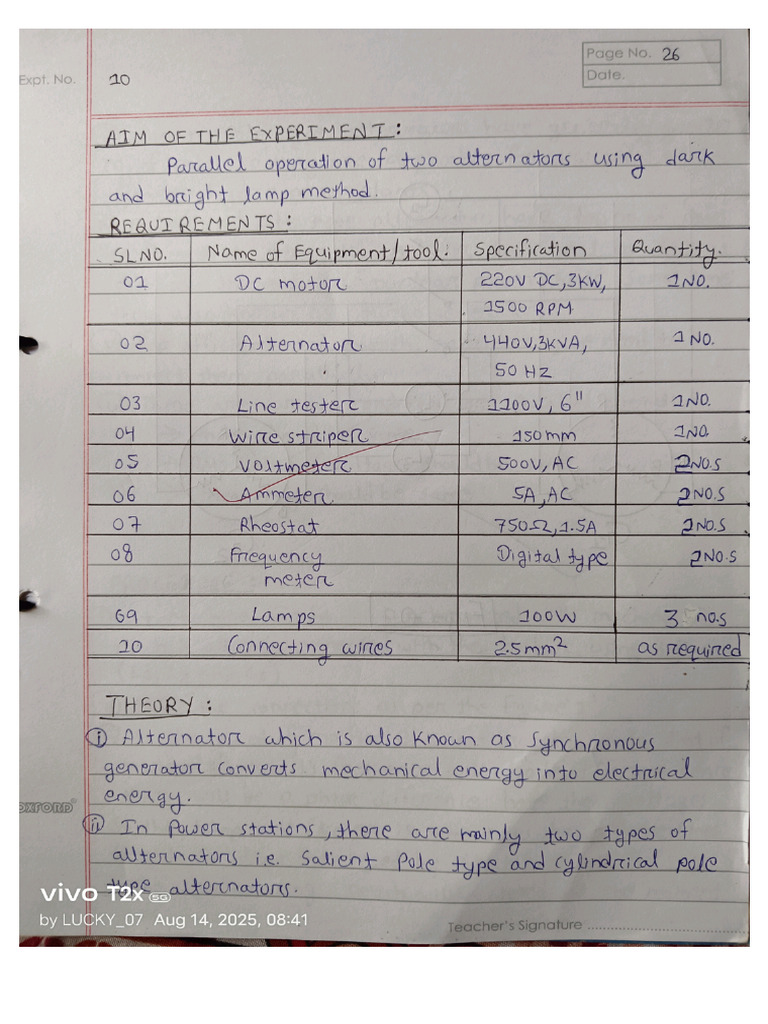 Page No. 26
Expt. No. 10
Date.
AIM OF THE EXPERIMENT:
Parallel operation of two alternators using dark
and bright lamp method.
REQUIREMENTS:
SLNO. Name of Equipment/tool: Specification Quantity.
01 DC motor 220V DC,3KW, 1NO.
1500 RPM
02 Alternator 440V,3KVA, 1 NO.
50 HZ
03 Line tester 1100V, 6" 1NO.
04 Wire striper 150mm 1NO.
05 Voltmeter 500V, AC 2NO.S
06 Ammeter 5A, AC 2NO.S
07 Rheostat 750Ω, 1.5A 2NO.S
08 Frequency Digital type 2NO.S
meter
09 Lamps 100W 3 no.s
10 Connecting wires 2.5mm² as required
THEORY:
i Alternator which is also known as Synchronous
generator converts mechanical energy into electrical
energy.
OXFORD
ii In Power stations, there are mainly two types of
allternators i.e. Salient Pole type and cylindrical pole
type alternators.
vivo T2x 5G
by LUCKY_07 Aug 14, 2025, 08:41
Teacher's Signature